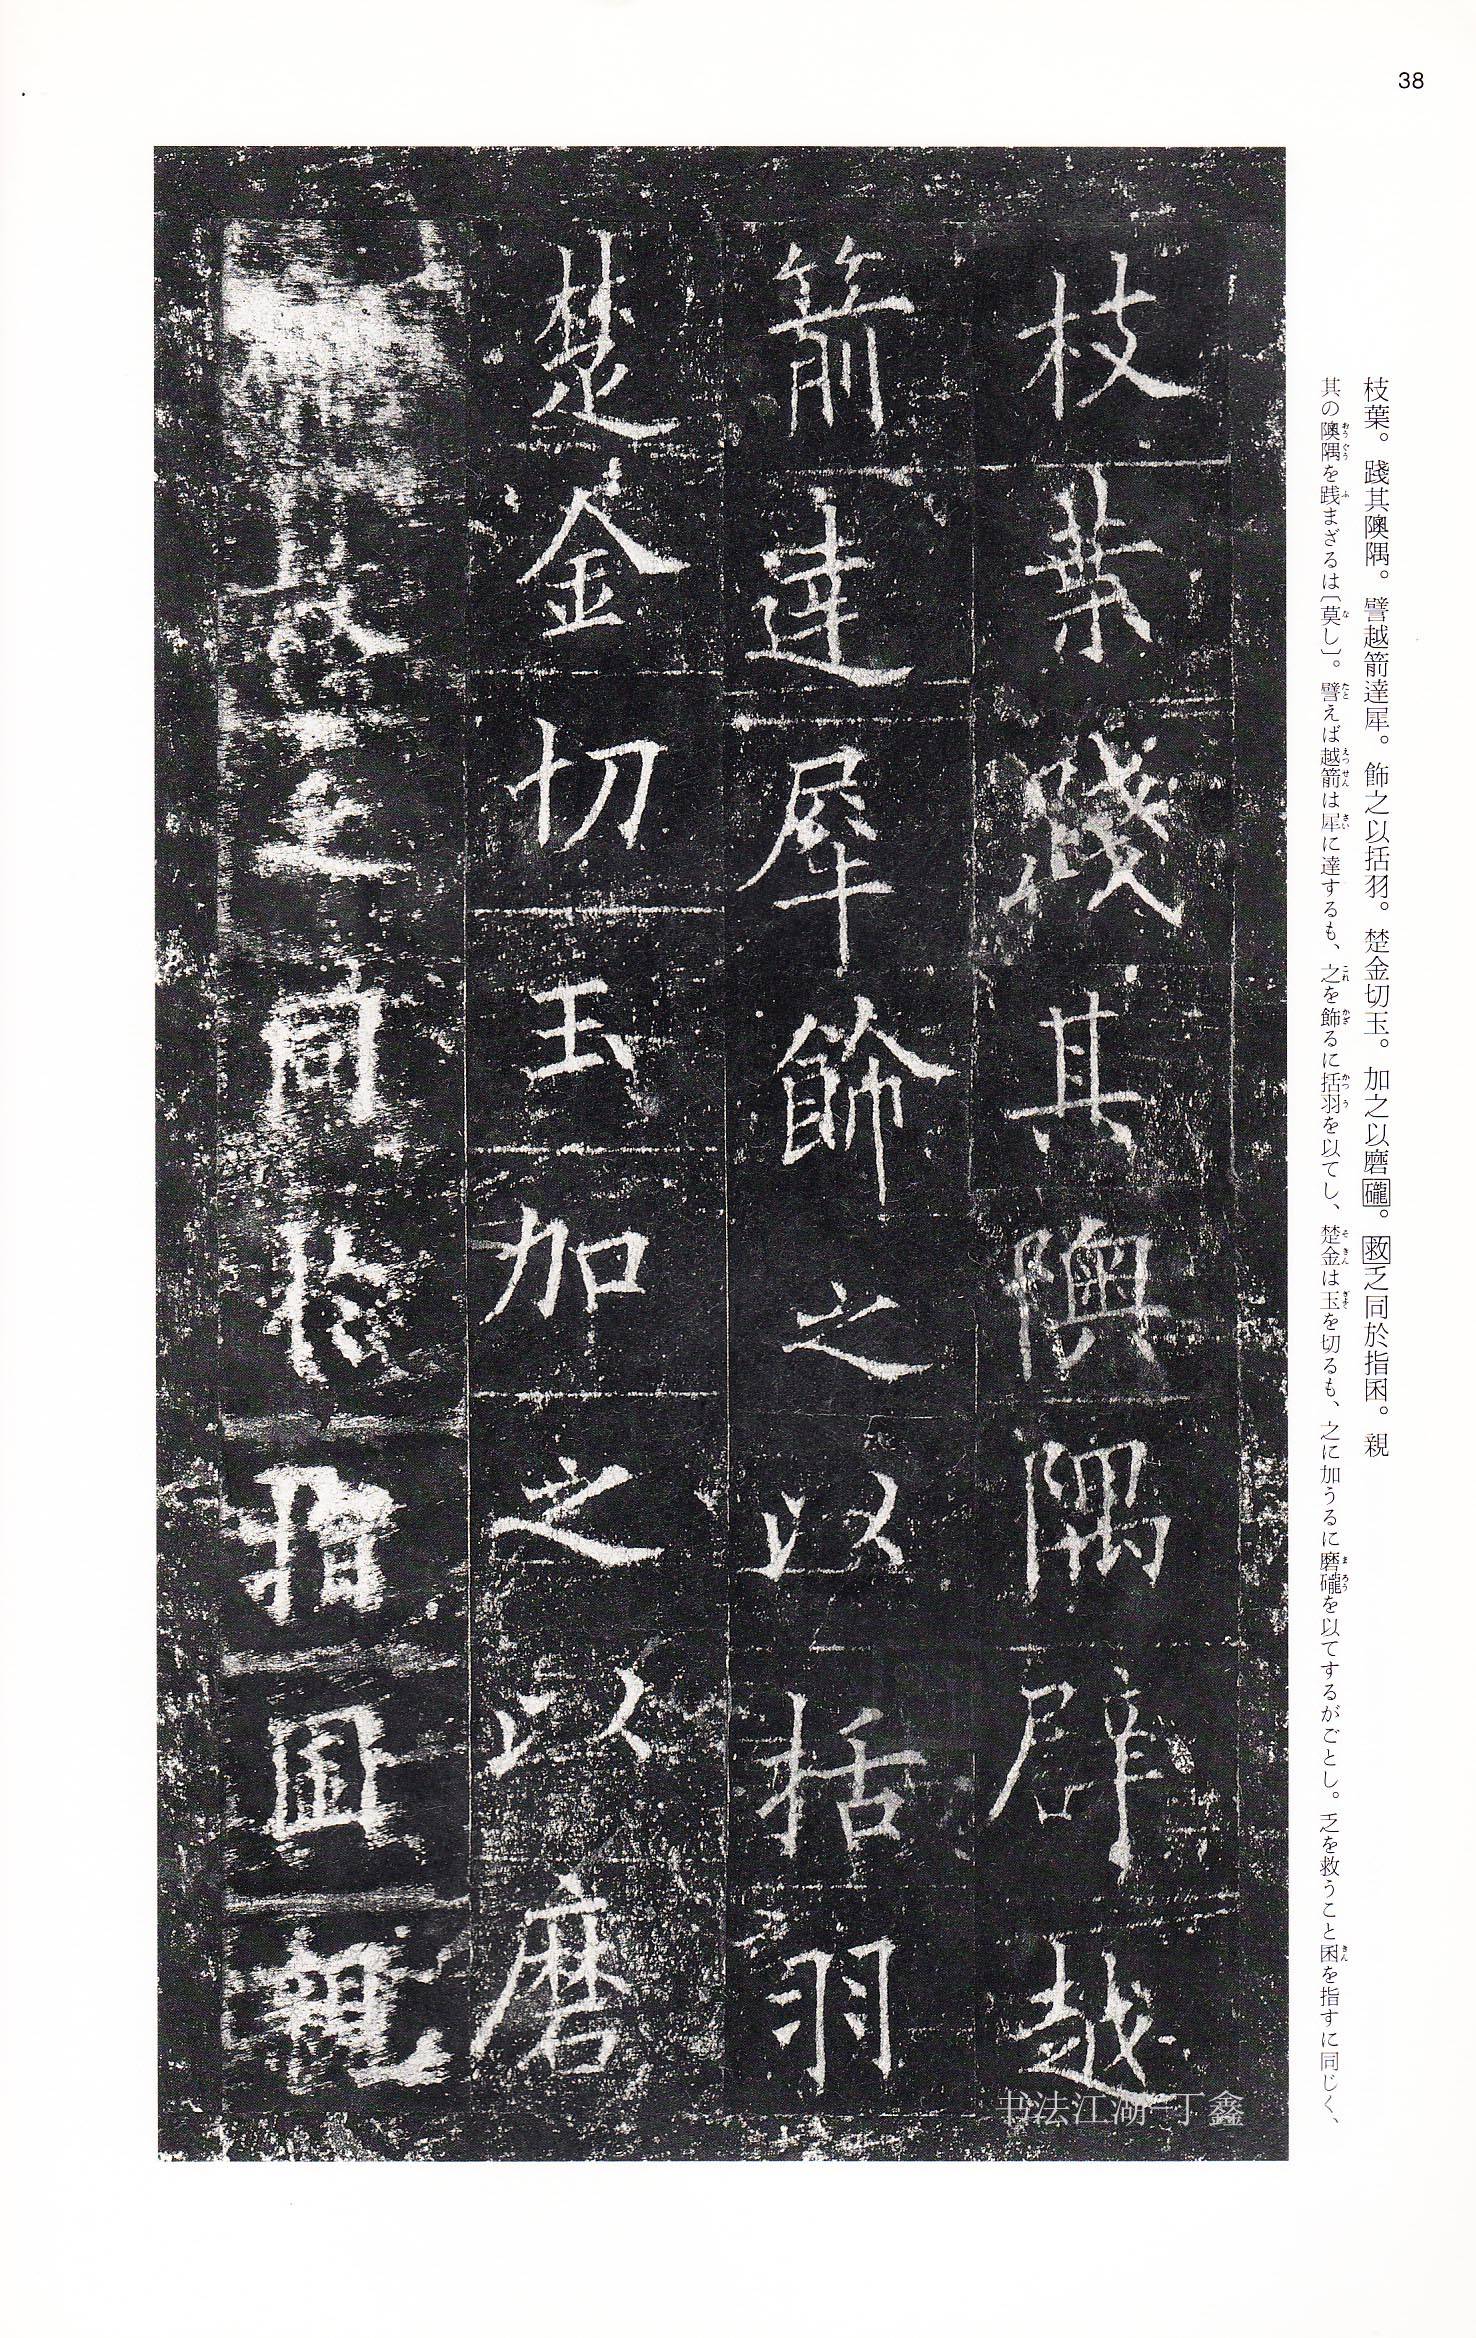 38
枝葉。踐其隩隅。譬越箭達犀。飾之以括羽。楚金切玉。加之以磨礲。救乏同於指囷。親
其の隩隅を践まざるは〔莫し〕。譬えば越箭は犀に達するも、之を飾るに括羽を以てし、楚金は玉を切るも、之に加うるに磨礲を以てするがごとし。乏を救うこと囷を指すに同じく、
枝葉踐其隩隅辟越
箭達犀飾之以括羽
楚金切玉加之以磨
救乏同於指囷親
书法江湖-丁鑫